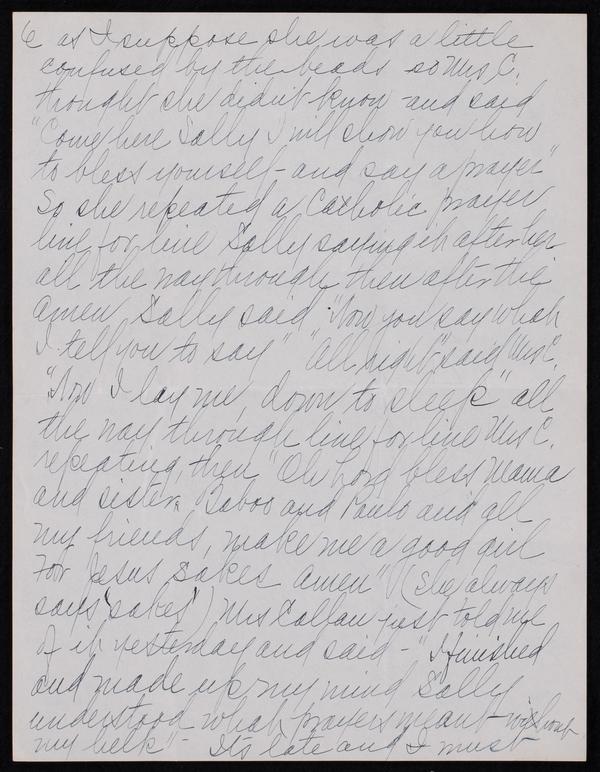 6 as I suppose she was a little
confused by the beads so Mrs C.
thought she didn't know - and said
"Come here Sally I will show you how
to bless yourself - and say a prayer"
So she repeated a Catholic prayer
line for line Sally saying it after her
all the way through, then after the
amen Sally said "Now you say what
I tell you to say" "All right" said Mrs C.
"Now I lay me down to sleep" all
the way through line for line Mrs C.
repeating, then "Oh Lord bless Mama
and sister, Baboo and Paulo and all
my friends, make me a good girl
For Jesus Sakes Amen" (She always
says "sakes") Mrs Callan just told me
of it yesterday and said - "I finished
and made up my mind Sally
understood what prayers meant without
my help" - Its late and I must